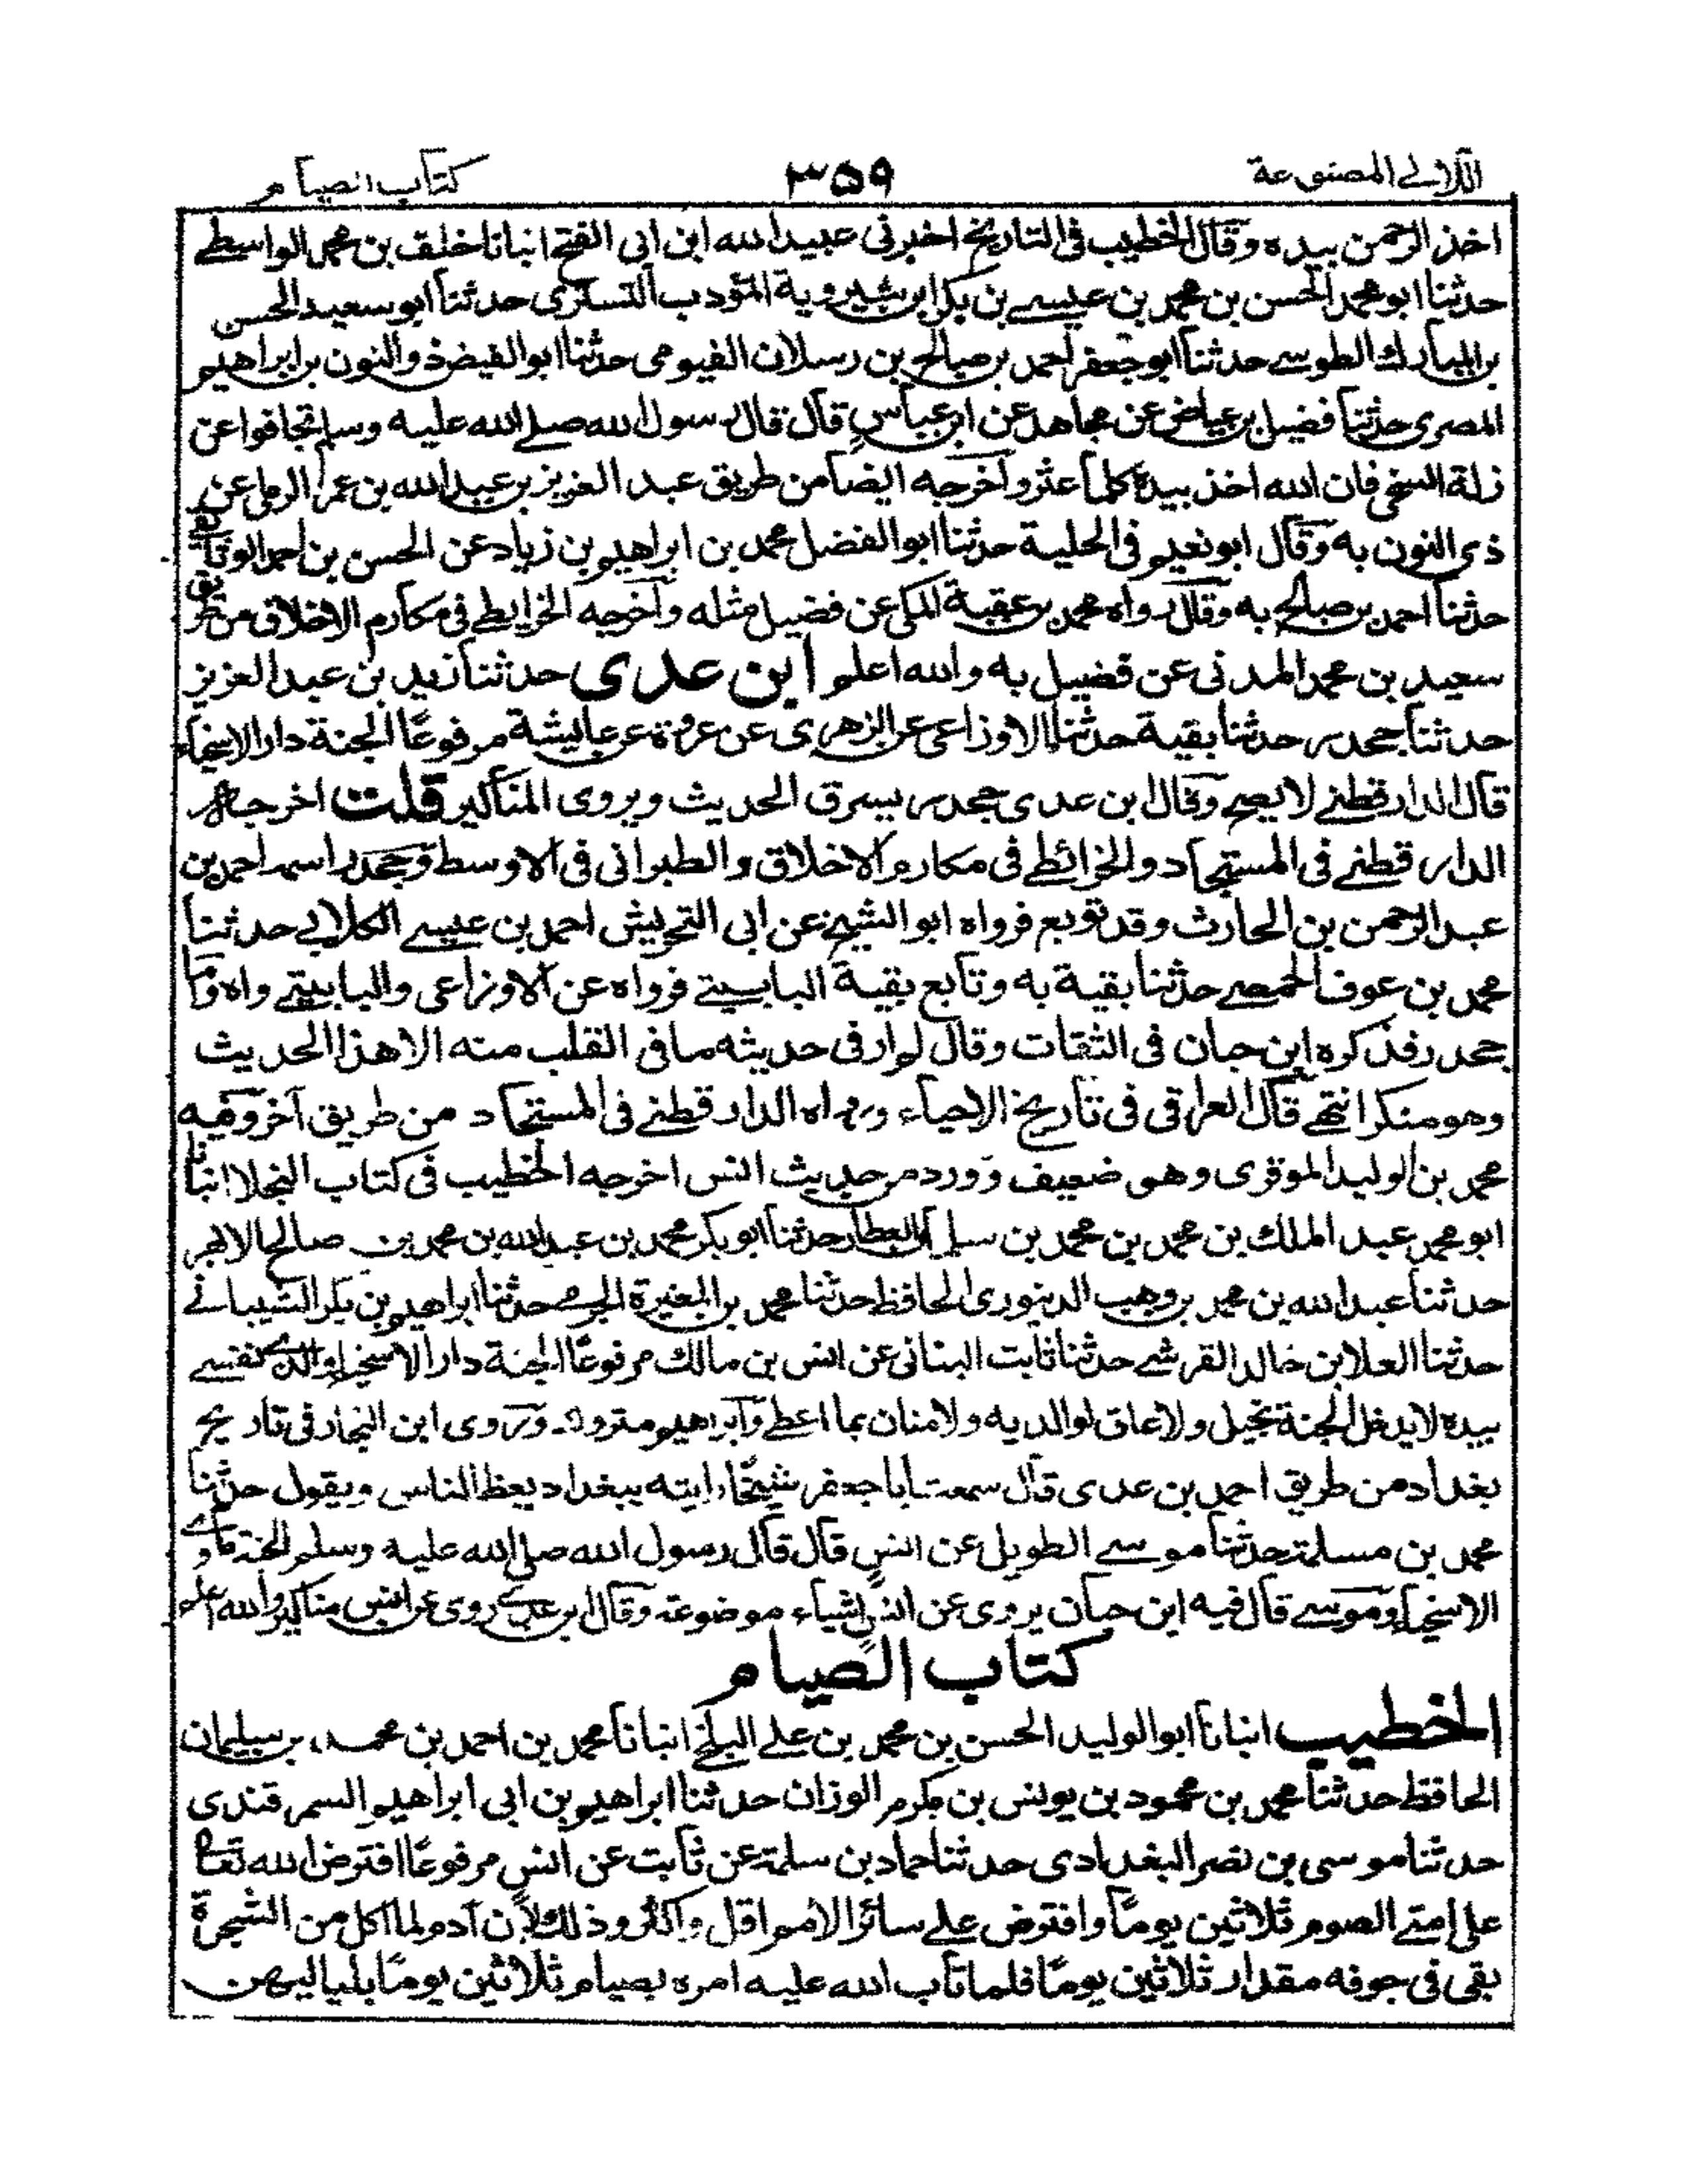 اللآلى المصنوعة
٣٥٩
كتاب الصيام
اخذ الرحمن بيده وقال الخطيب فى التاريخ اخبرنى عبيد الله ابن ابى الفتح انبانا خلف بن محمد الواسطے
حدثنا ابو محمد الحسن بن محمد بن عيسے بن بكر ابن شيروية المؤدب التسترى حدثنا ابو سعيد الحسن
بن المبارك الطوسے حدثنا ابو جعفر احمد بن صالح بن رسلان الفيومى حدثنا ابو الفيض ذو النون بن ابراهيم
المصرى حدثنا فضيل بن عياض عن مجاهد عن ابن عباس قال قال رسول الله صلے الله عليه وسلم تجافوا عن
زلة السخى فان الله اخذ بيده كلما عثر واخرجه ايضا من طريق عبد العزيز بن عبد الله بن عمر الرملى عن
ذى النون به وقال ابو نعيم فى الحلية حدثنا ابو الفضل محمد بن ابراهيم بن زياد عن الحسن بن احمد الوثائقى
حدثنا احمد بن صالح به وقال رواه محمد بن عقبة المكى عن فضيل مثله واخرجه الخرايطے فى مكارم الاخلاق من طريق
سعيد بن محمد المدنى عن فضيل به والله اعلم ابن عدى حدثنا زيد بن عبد العزيز
حدثنا جحدر حدثنا بقية حدثنا الاوزاعى عن الزهرى عن عروة عن عايشة مرفوعًا الجنة دار الاسخياء
قال الدارقطنے لا يصح وقال ابن عدى جحدر يسرق الحديث ويروى المناكير قلت اخرجه
الدارقطنے فى المستجاد والخرائطے فى مكارم الاخلاق والطبرانى فى الاوسط وجحدر اسمه احمد بن
عبد الرحمن بن الحارث وقد توبع فرواه ابو الشيخ عن ابى التحريش احمد بن عيسے الكلابے حدثنا
محمد بن عوف الحمصے حدثنا بقية به وتابع بقية البابسيتے فرواه عن الاوزاعى والبابيتے واه وما
جحدر فذكره ابن حبان فى الثقات وقال لم ار فى حديثه ما فى القلب منه الا هذا الحديث
وهو منكر انتهے قال العراقى فى تاريخ الاحياء ورواه الدارقطنے فى المستجاد من طريق آخر وفيه
محمد بن الوليد الموقرى وهو ضعيف وورد من حديث انس اخرجه الخطيب فى كتاب البخلا انبانا
ابو محمد عبد الملك بن محمد بن محمد بن سلمان العطار حدثنا ابو بكر محمد بن عبد الله بن محمد بن صالح الابهر
حدثنا عبد الله بن محمد بن وهيب الدينورى الحافظ حدثنا محمد بن المغيرة الجرمے حدثنا ابراهيم بن بكر الشيبانے
حدثنا العلا بن خالد القرشے حدثنا ثابت البنانى عن انس بن مالك مرفوعًا الجنة دار الاسخياء والذے نفسے
بيده لا يدخل الجنة بخيل ولا عاق لوالديه ولا منان بما اعطے وابراهيم متروك وروى ابن النجار فى تاريخ
بغداد من طريق احمد بن عدى قال سمعت ابا جعفر شيخًا رايته ببغداد يعظ الناس ويقول حدثنا
محمد بن مسلمة حدثنا موسے الطويل عن انس قال قال رسول الله صلى الله عليه وسلم الجنة ماوے
الاسخياء وموسے قال فيه ابن حبان يروى عن انس اشياء موضوعة وقال ابن عدے روى عن انس مناكير والله اعلم
كتاب الصيام
الخطيب انبانا ابو الوليد الحسن بن محمد بن علے البلخے انبانا محمد بن احمد بن محمد بن سليمان
الحافظ حدثنا محمد بن محمود بن يونس بن مكرم الوزان حدثنا ابراهيم بن ابى ابراهيم السمرقندى
حدثنا موسى بن نصر البغدادى حدثنا حماد بن سلمة عن ثابت عن انس مرفوعًا افترض الله تعالى
على امتے الصوم ثلاثين يومًا وافترض علے سائر الامم اقل واكثر وذلك لان آدم لما اكل من الشجرة
بقى فى جوفه مقدار ثلاثين يومًا فلما تاب الله عليه امره بصيام ثلاثين يومًا بلياليهن